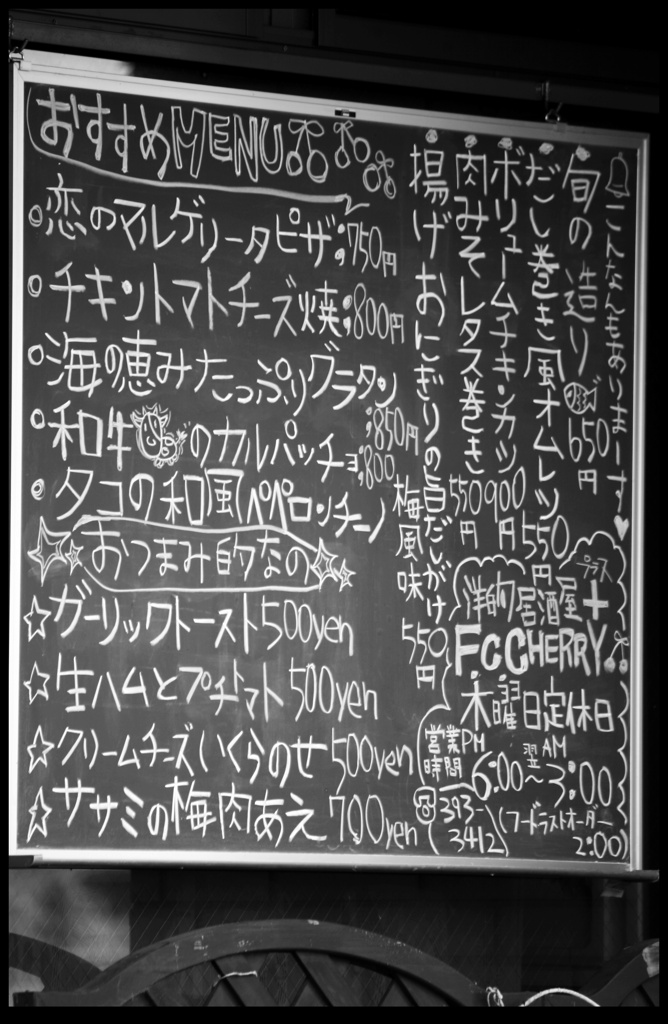 おすすめMENU
恋のマルゲリータピザ:750円
チキントマトチーズ焼:800円
海の恵みたっぷりグラタン:850円
和牛のカルパッチョ:800
タコの和風ペペロンチーノ
おつまみ的なの
ガーリックトースト500yen
生ハムとプチトマト500yen
クリームチーズいくらのせ500yen
ササミの梅肉あえ700yen
こんなんもありまーす
旬の造り650円
だし巻き風オムレツ550円
ボリュームチキンカツ900円
肉みそレタス巻き550円
揚げおにぎりの旨だしがけ
梅風味550円
洋的居酒屋+
プラス
FCCHERRY
木曜日定休日
営業時間PM6:00~翌AM3:00
(フードラストオーダー2:00)
393-3412